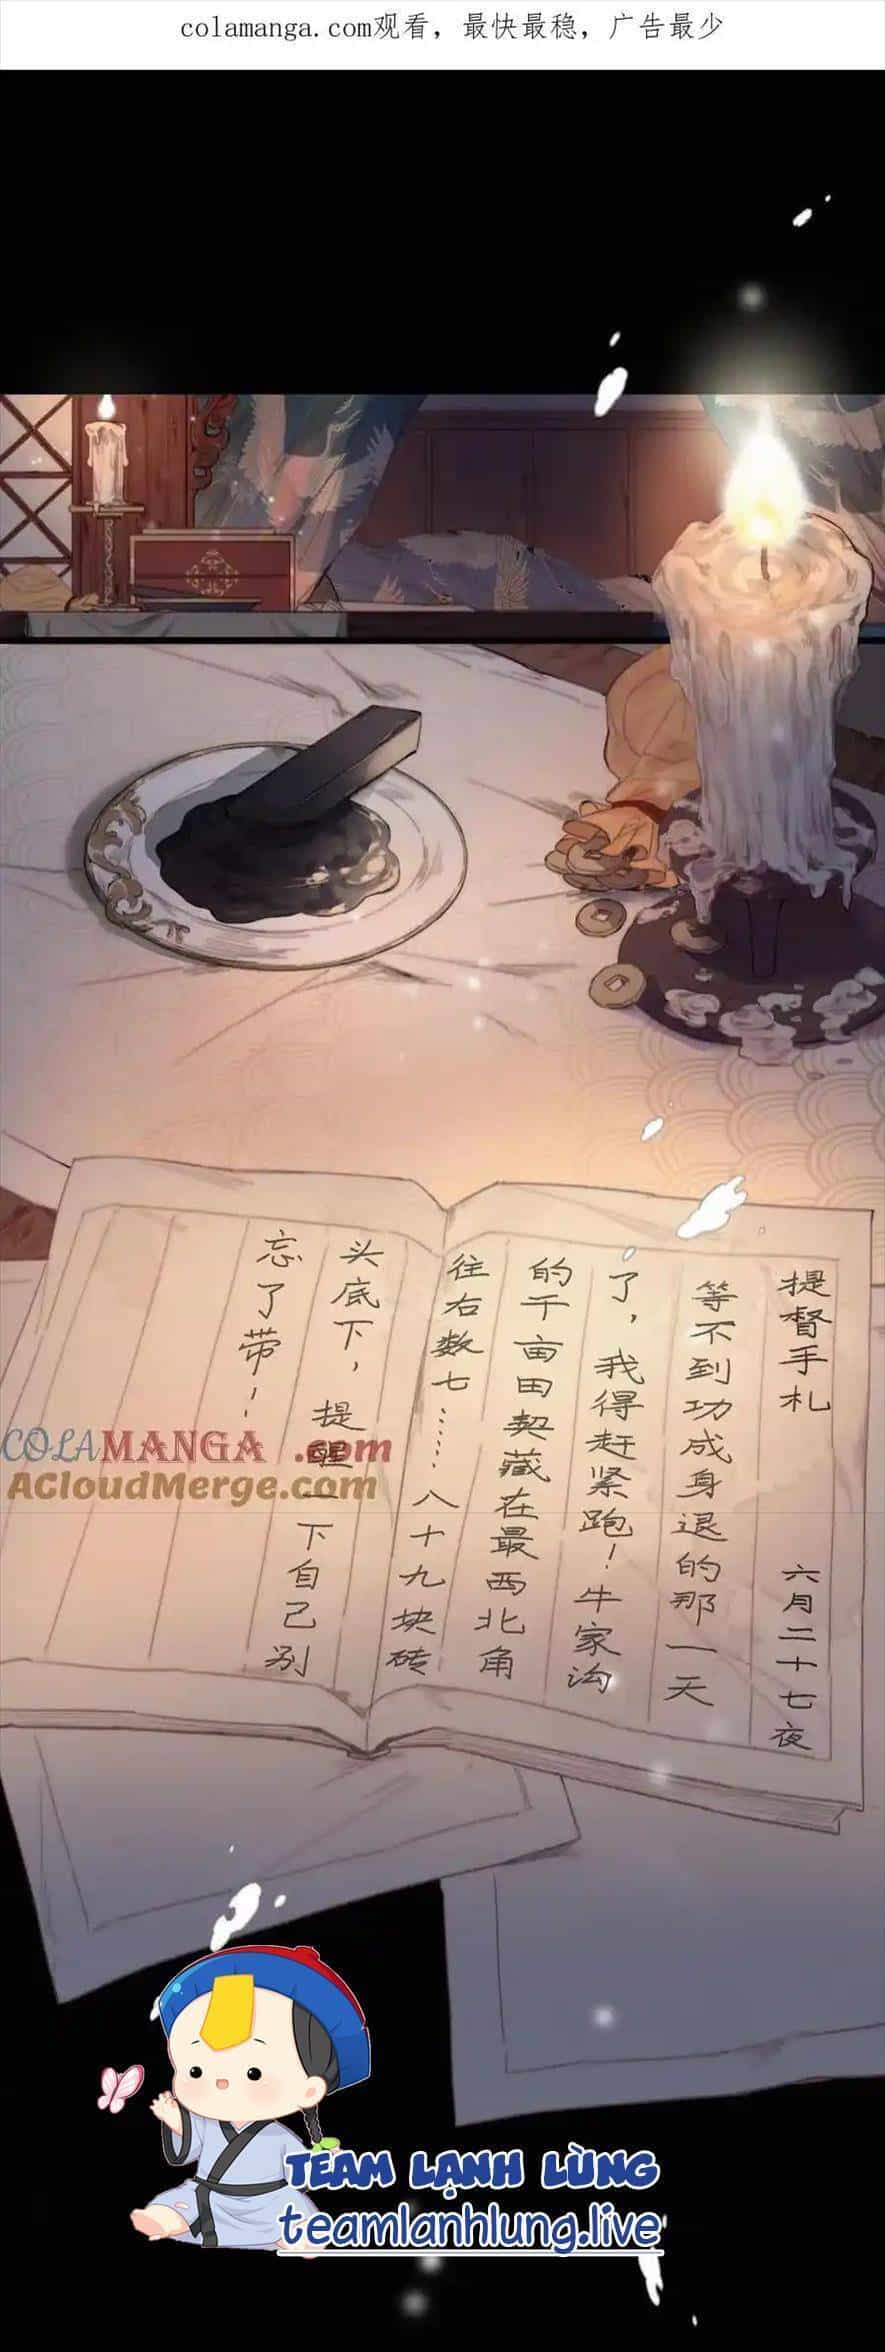 colamanga.com观看，最快最稳，广告最少
提督手札 六月二十七夜
等不到功成身退的那一天
了，我得赶紧跑！牛家沟
的千亩田契藏在最西北角
往右数七……八十九块砖
头底下，提醒一下自己别
忘了带！
COLAMANGA.com
ACloudMerge.com
TEAM LẠNH LÙNG
teamlanhlung.live